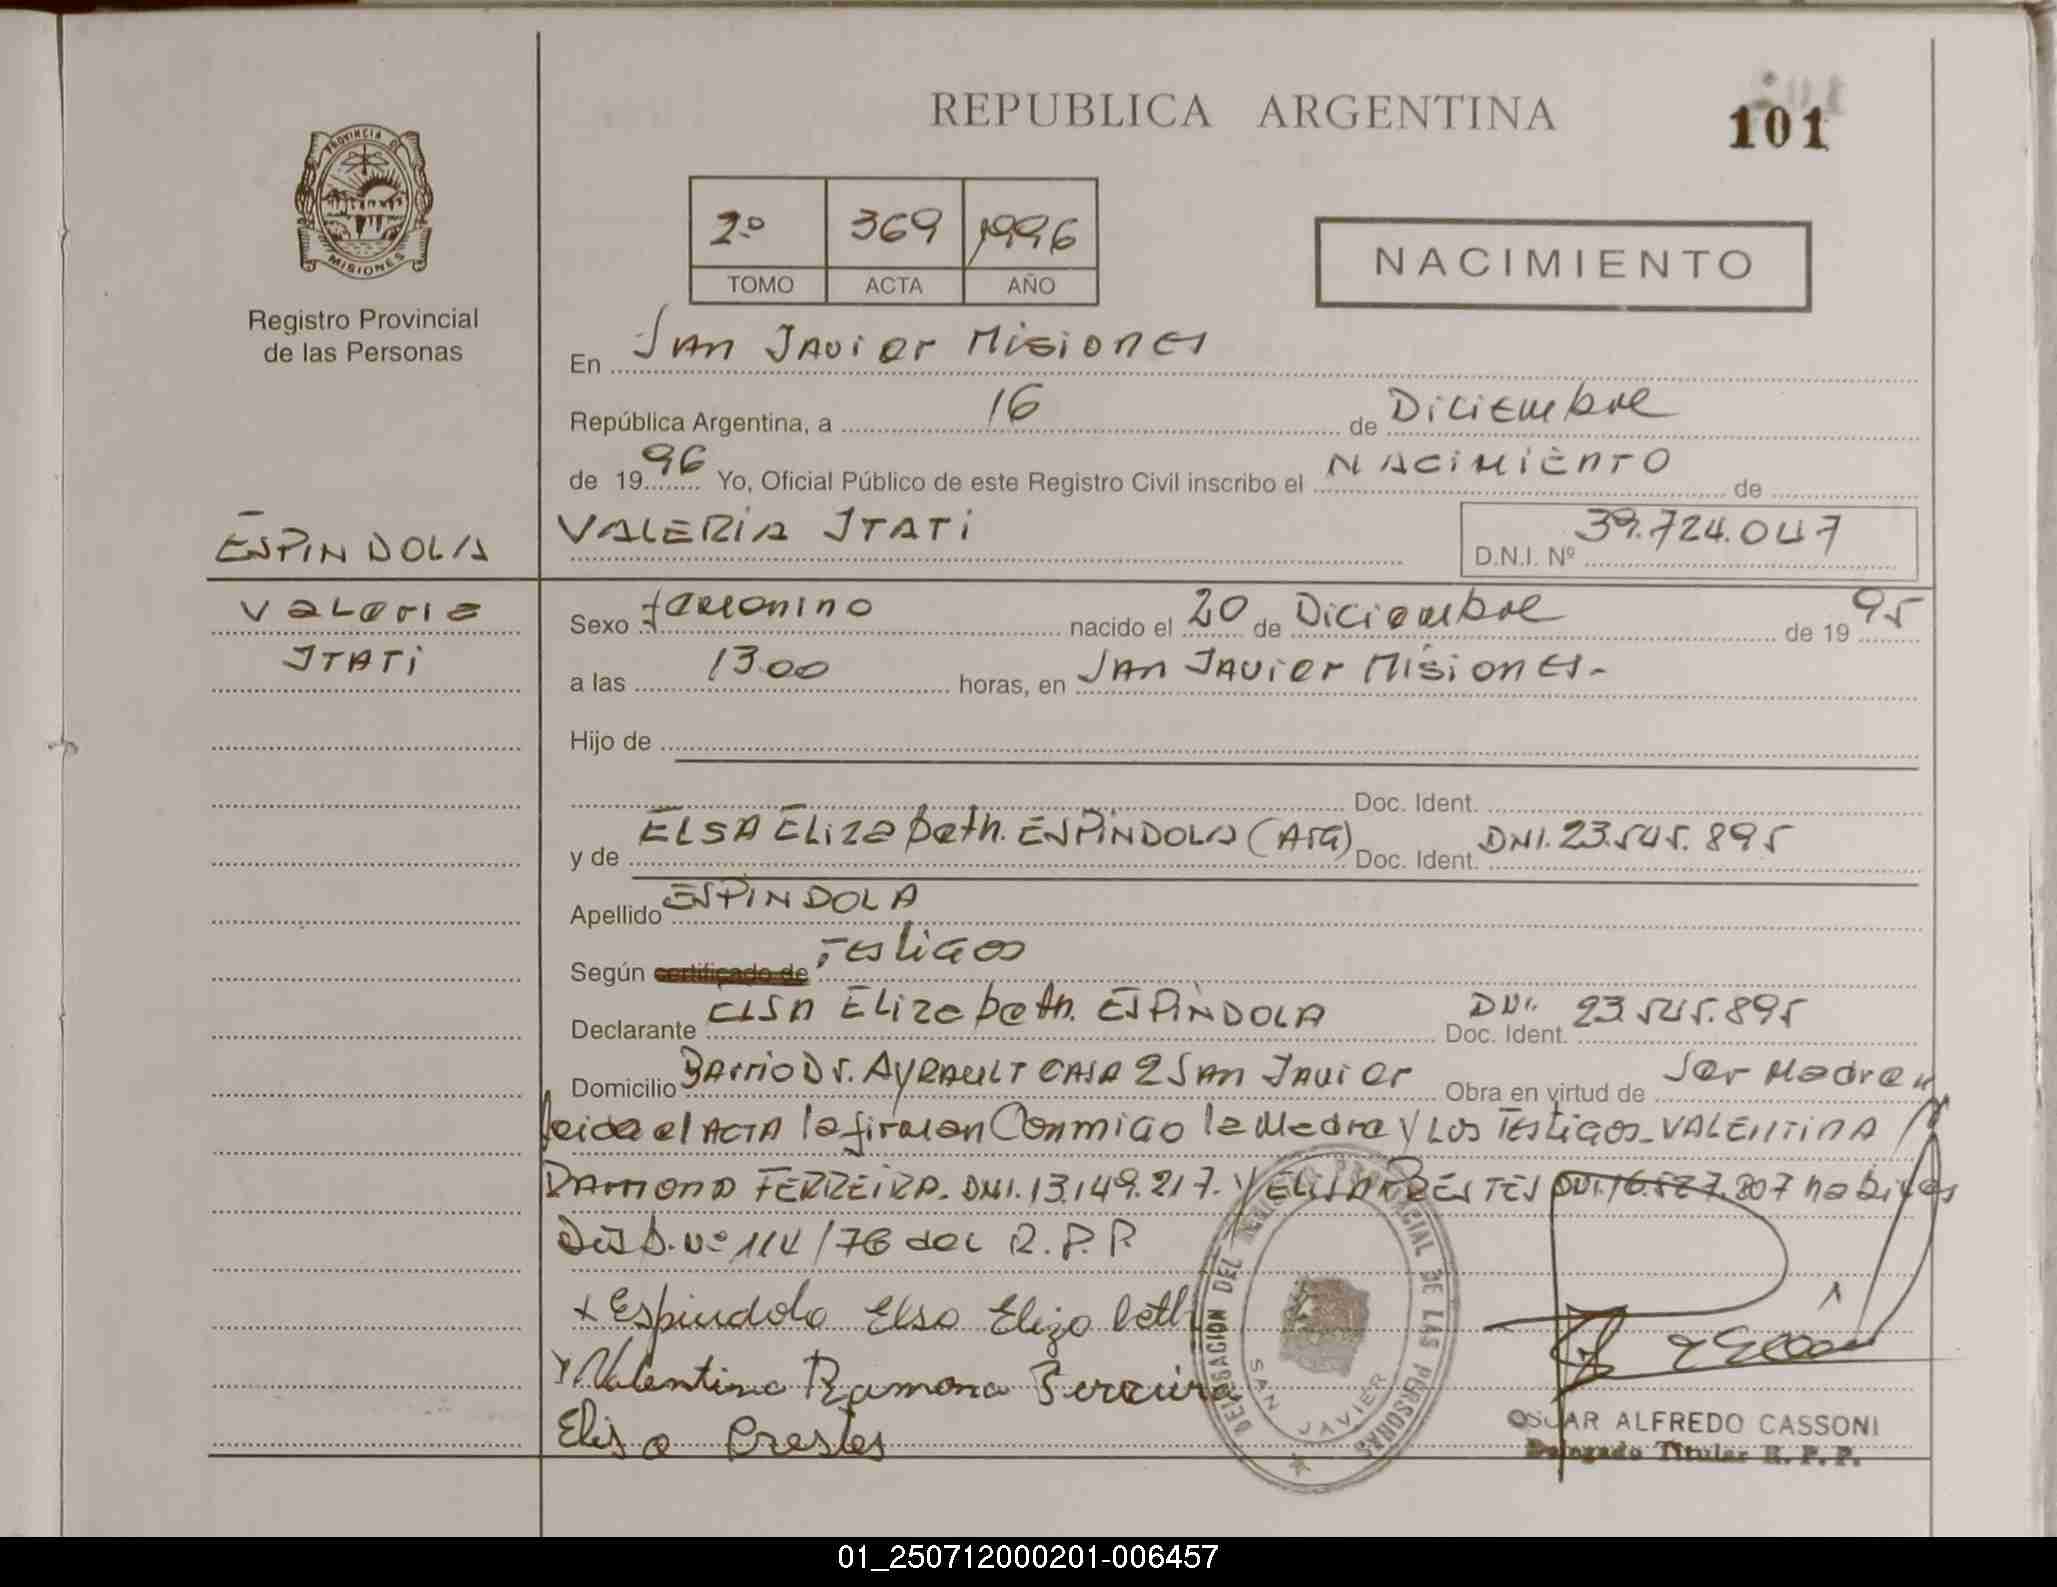 REPUBLICA ARGENTINA
101
PROVINCIA DE MISIONES
Registro Provincial
de las Personas
2º 369 1996
TOMO ACTA AÑO
NACIMIENTO
En San Javier Misiones
República Argentina, a 16 de Diciembre
de 1996 Yo, Oficial Público de este Registro Civil inscribo el NACIMIENTO de
ESPINDOLA
VALERIA ITATI
D.N.I. Nº 39.724.047
Valeria
ITATI
Sexo femenino nacido el 20 de Diciembre de 1995
a las 13.00 horas, en San Javier Misiones.-
Hijo de
Doc. Ident.
y de ELSA Elizabeth. ESPINDOLA (Arg) Doc. Ident. DNI. 23.545.895
Apellido ESPINDOLA
Según certificado de Testigos
Declarante ELSA Elizabeth. ESPINDOLA Doc. Ident. DNI. 23.545.895
Domicilio Barrio Dr. AYRAULT CASA 2 San Javier Obra en virtud de Ser Madre
leida el ACTA la firman Conmigo la Madre y LOS TEStigos_VALENTINA
Ramona FERREIRA. DNI. 13.149.217. Y ELISA PRESTES DNI. 16.527.807 habiles
Disp. Nº 114/76 del R.P.P.
x Espindola Elsa Elizabeth
x Valentina Ramona Ferreira
Elisa Prestes
DELEGACION DEL REGISTRO PROVINCIAL DE LAS PERSONAS
SAN JAVIER
OSCAR ALFREDO CASSONI
Delegado Titular R. P. P.
01_250712000201-006457